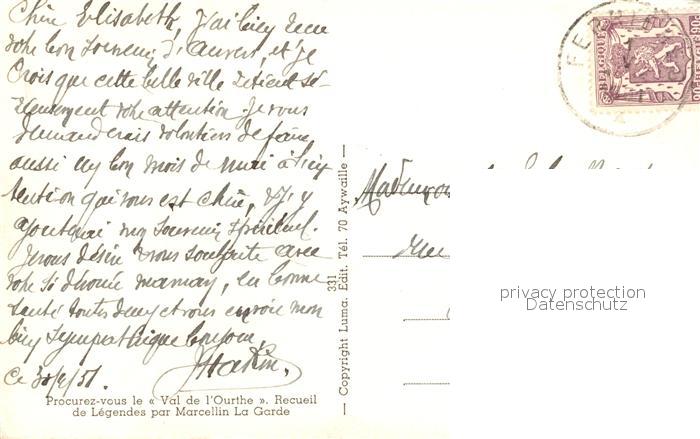 Chère Elisabeth, J'ai bien reçu
votre bon souvenir d'Anvers, et je
crois que cette belle ville retient sé-
rieusement votre attention. Je vous
demanderais volontiers de faire
aussi un bon mois de mai à l'in
tention qui vous est chère, et j'y
ajouterai mon souvenir spirituel.
Je vous désire et vous souhaite avec
votre si dévouée maman, en bonne
santé toutes deux et vous envoie mon
bien sympathique bonjour,
Ce 30/4/51.
Procurez-vous le « Val de l'Ourthe ». Recueil
de Légendes par Marcellin La Garde
331
Copyright Luma. Edit. Tél. 70 Aywaille
BELGIQUE
privacy protection
Datenschutz